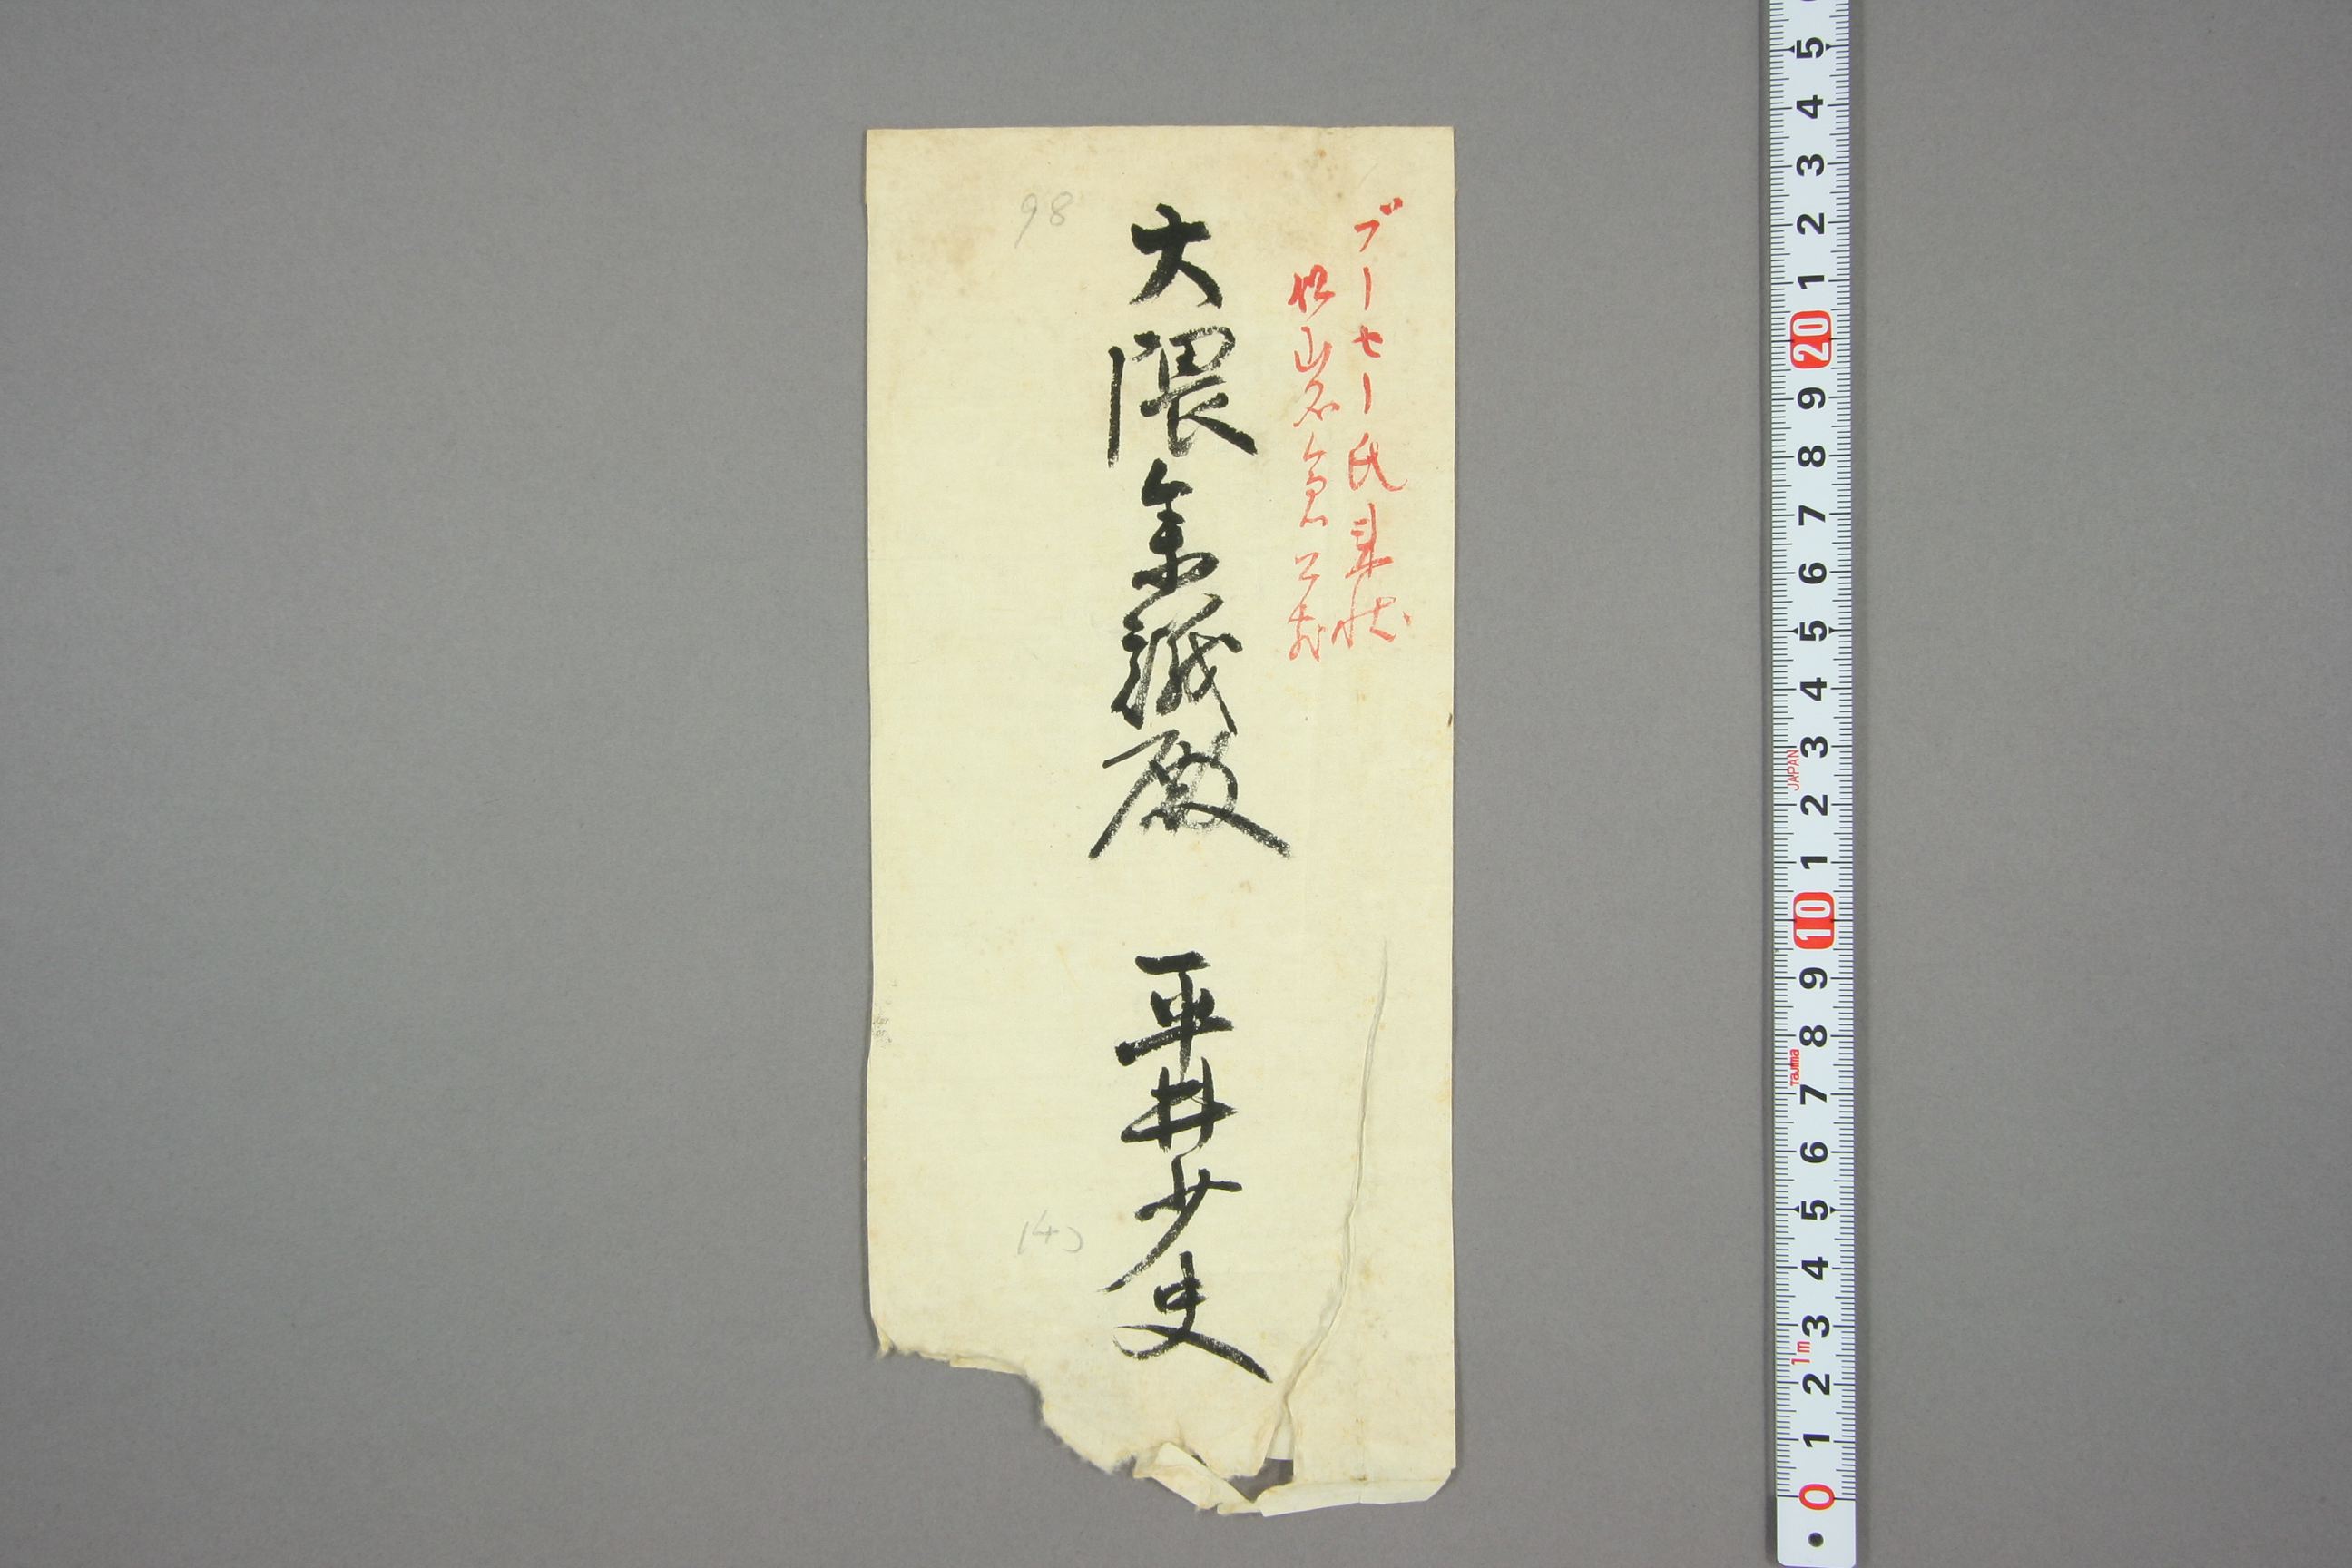 ブーセー氏来状
岩倉公
大隈参議殿
平井少史
98
5 4 3 2 1 20 9 8 7 6 5 4 3 2 1 10 9 8 7 6 5 4 3 2 1 0
JAPAN
Tajima
1m